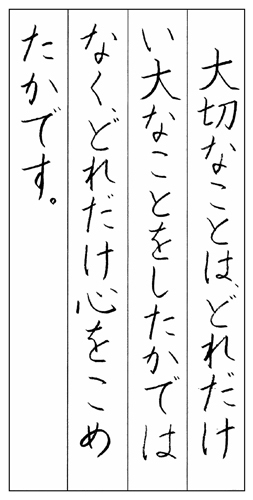 大切なことは、どれだけ
い大なことをしたかでは
なく、どれだけ心をこめ
たかです。